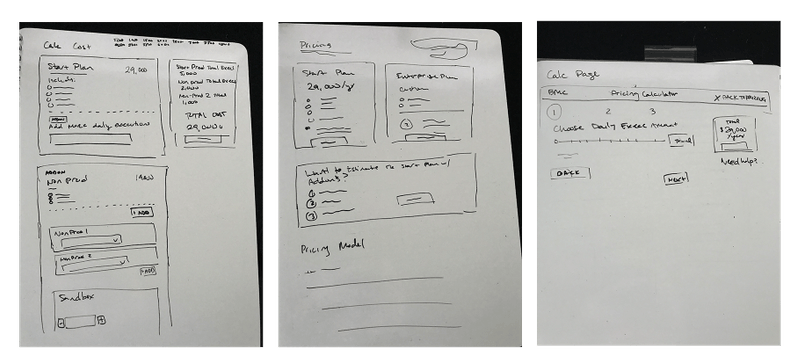 Calc Cost
Start Plan 29,000
Include:
Add more daily execution
Start Prod Total Exec
5000
Non prod Total Exec
2,000
Non-Prod 2 Total
1,000
TOTAL COST
29,000
ADDON
Non Prod
+ ADD
Non Prod 1
Non Prod 2
+ ADD
Sandbox
Pricing
Start Plan
29,000/yr
Enterprise Plan
Custom
Want to Estimate the Start Plan w/
Addons?
1
2
3
Pricing Model
Calc Page
BMC Pricing Calculator X Back to Pricing
1 2 3
Choose Daily Exec Amount
Total
$29,000
/year
Need help?
BACK
NEXT